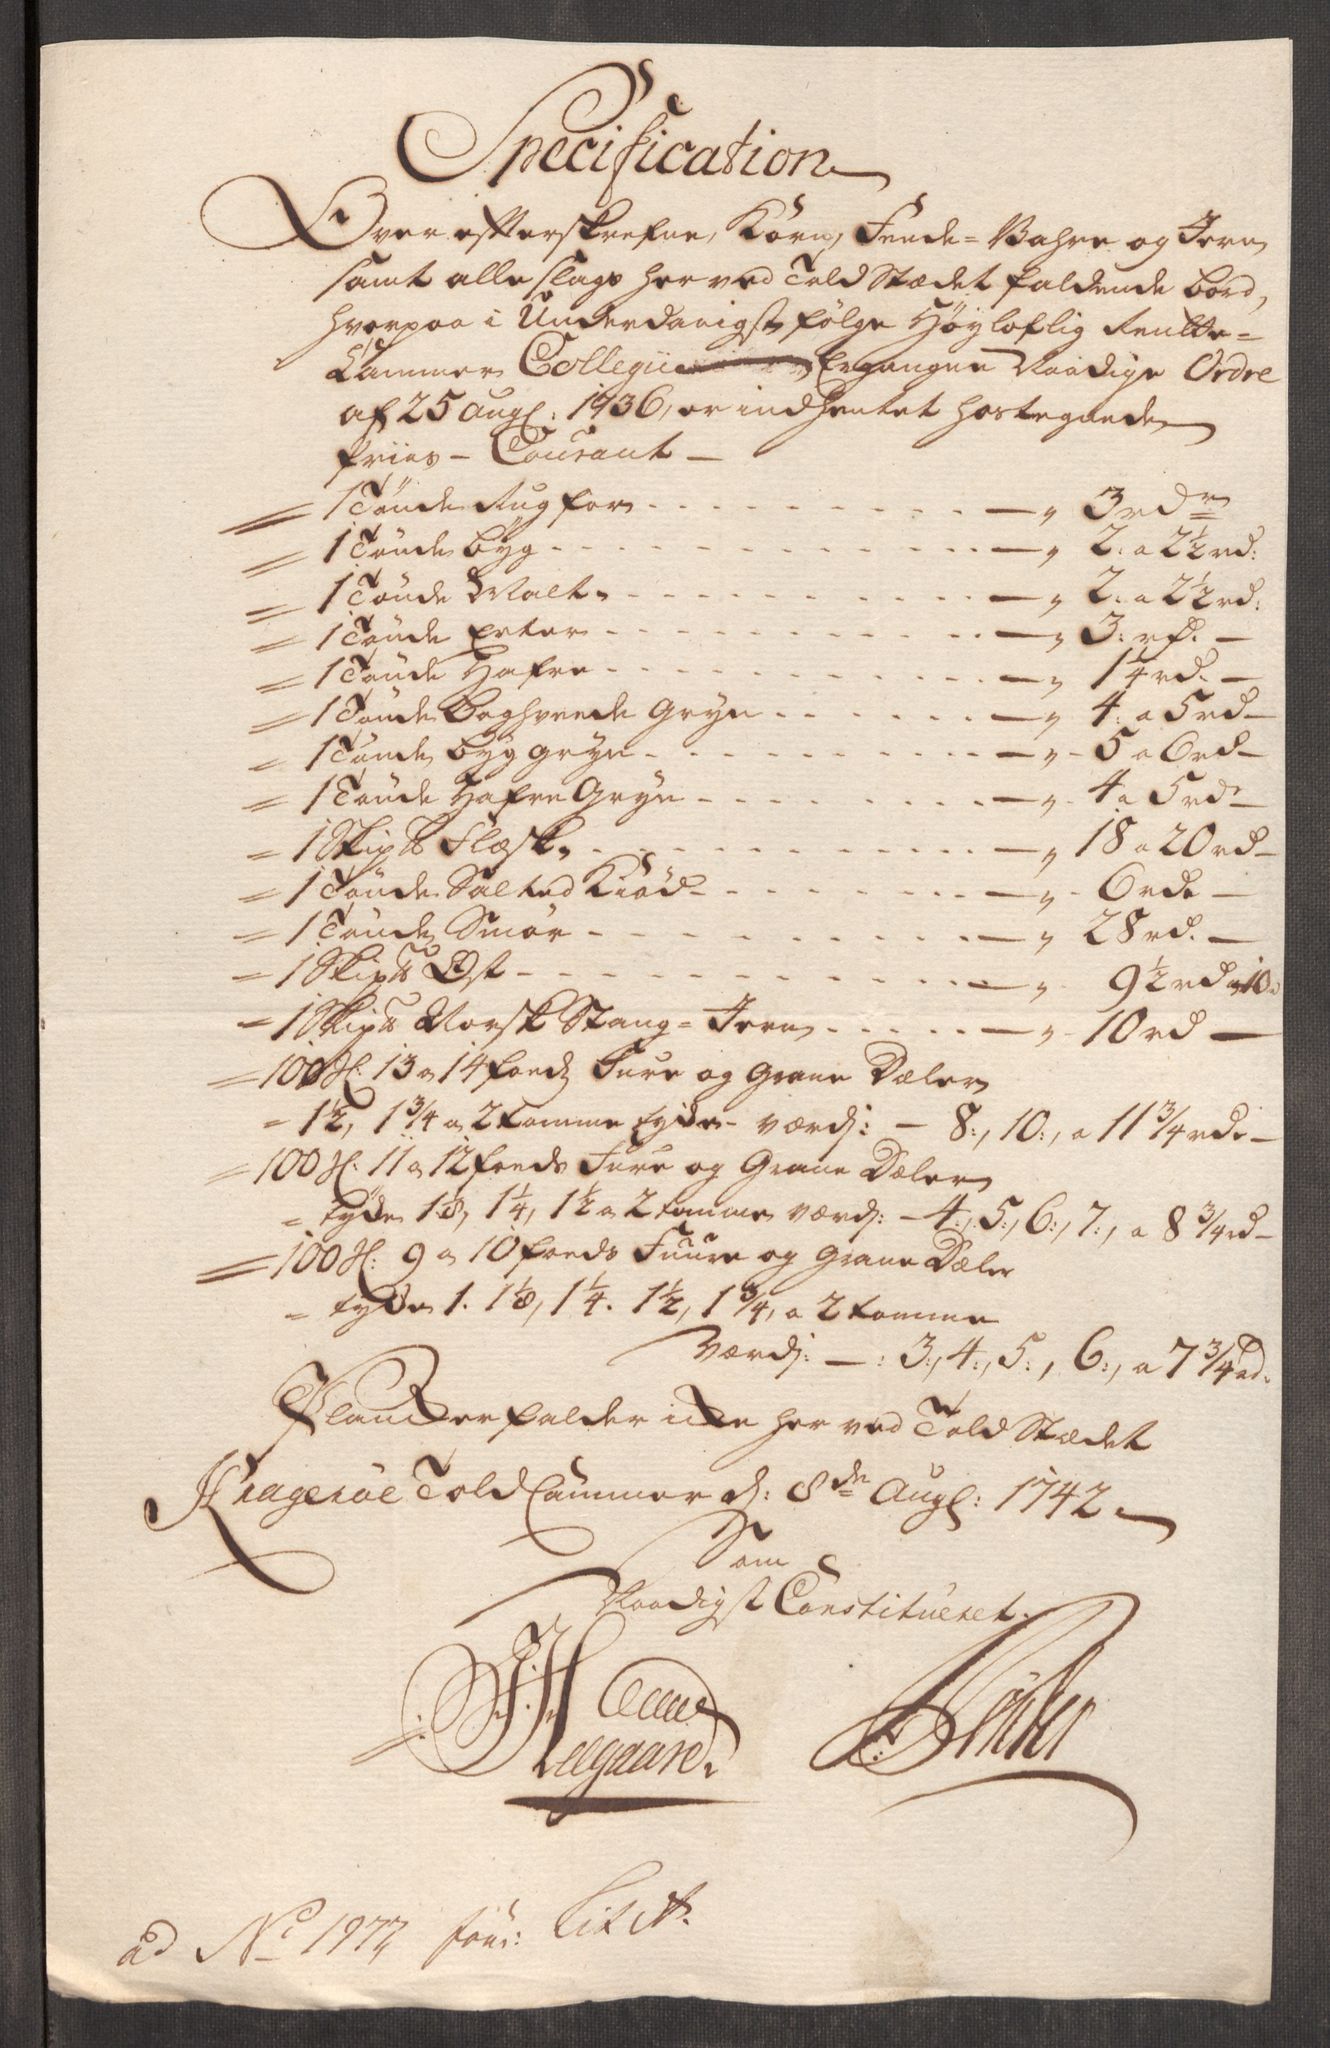 Specification
Over efterskrefne, Korn, Feede= Vahre og Jern
samt alle slags her ved Told Stædet faldende bord,
hvorpaa i Underdanigst følge Høyloflig Rentte=
Kammer Collegii Ergangne Naadige Ordre
af 25 Aug: 1736, er indhentet hostegnede
Priis - Courant -
1 Tönde Rug for - 3 rdr
1 Tönde byg - 2. a 2½ rd:
1 Tönde Malt - 2. a 2½ rd:
1 Tönde Erter - 3: rd. -
1 Tönde Hafre - 1¼ rd. -
1 Tönde Boghvede Gryn - 4. a 5 rd -
1 Tönde byg gryn - 5 a 6 rd -
1 Tönde Hafre Gryn - 4 a 5 rd -
1 Skip℔ Flæsk - 18 a 20 rd -
1 Tönde Salted Kiöd - 6 rd -
1 Tönde Smör - 28 rd. -
1 Skip℔ Ost - 9½ rd a 10
1 Skip℔ Norsk Stang= Jern - 10 rd -
100 st: 13 a 14 foeds Fure og Grane Dæler
1½, 1¾ a 2 tomme tyke - værdj: - 8:, 10:, a 11¾ rd -
100 st: 11 a 12 foeds Fure og Grane Dæler
tyke 1⅛, 1¼, 1½ a 2 tomme værdj: - 4:, 5:, 6:, 7:, a 8¾ rd -
100 st: 9 a 10 foeds Fuure og Grane Dæler
tyke 1. 1⅛, 1¼. 1½, 1¾, a 2 tomme
Værdj: - : 3:, 4:, 5:, 6:, a 7¾ rd.
Plancker falder icke her ved Told Stædet
Krageröe Told Cammer dj: 8de Aug: 1742
Som
Naadigst Constitueret.
ad No 1977 Lit A.